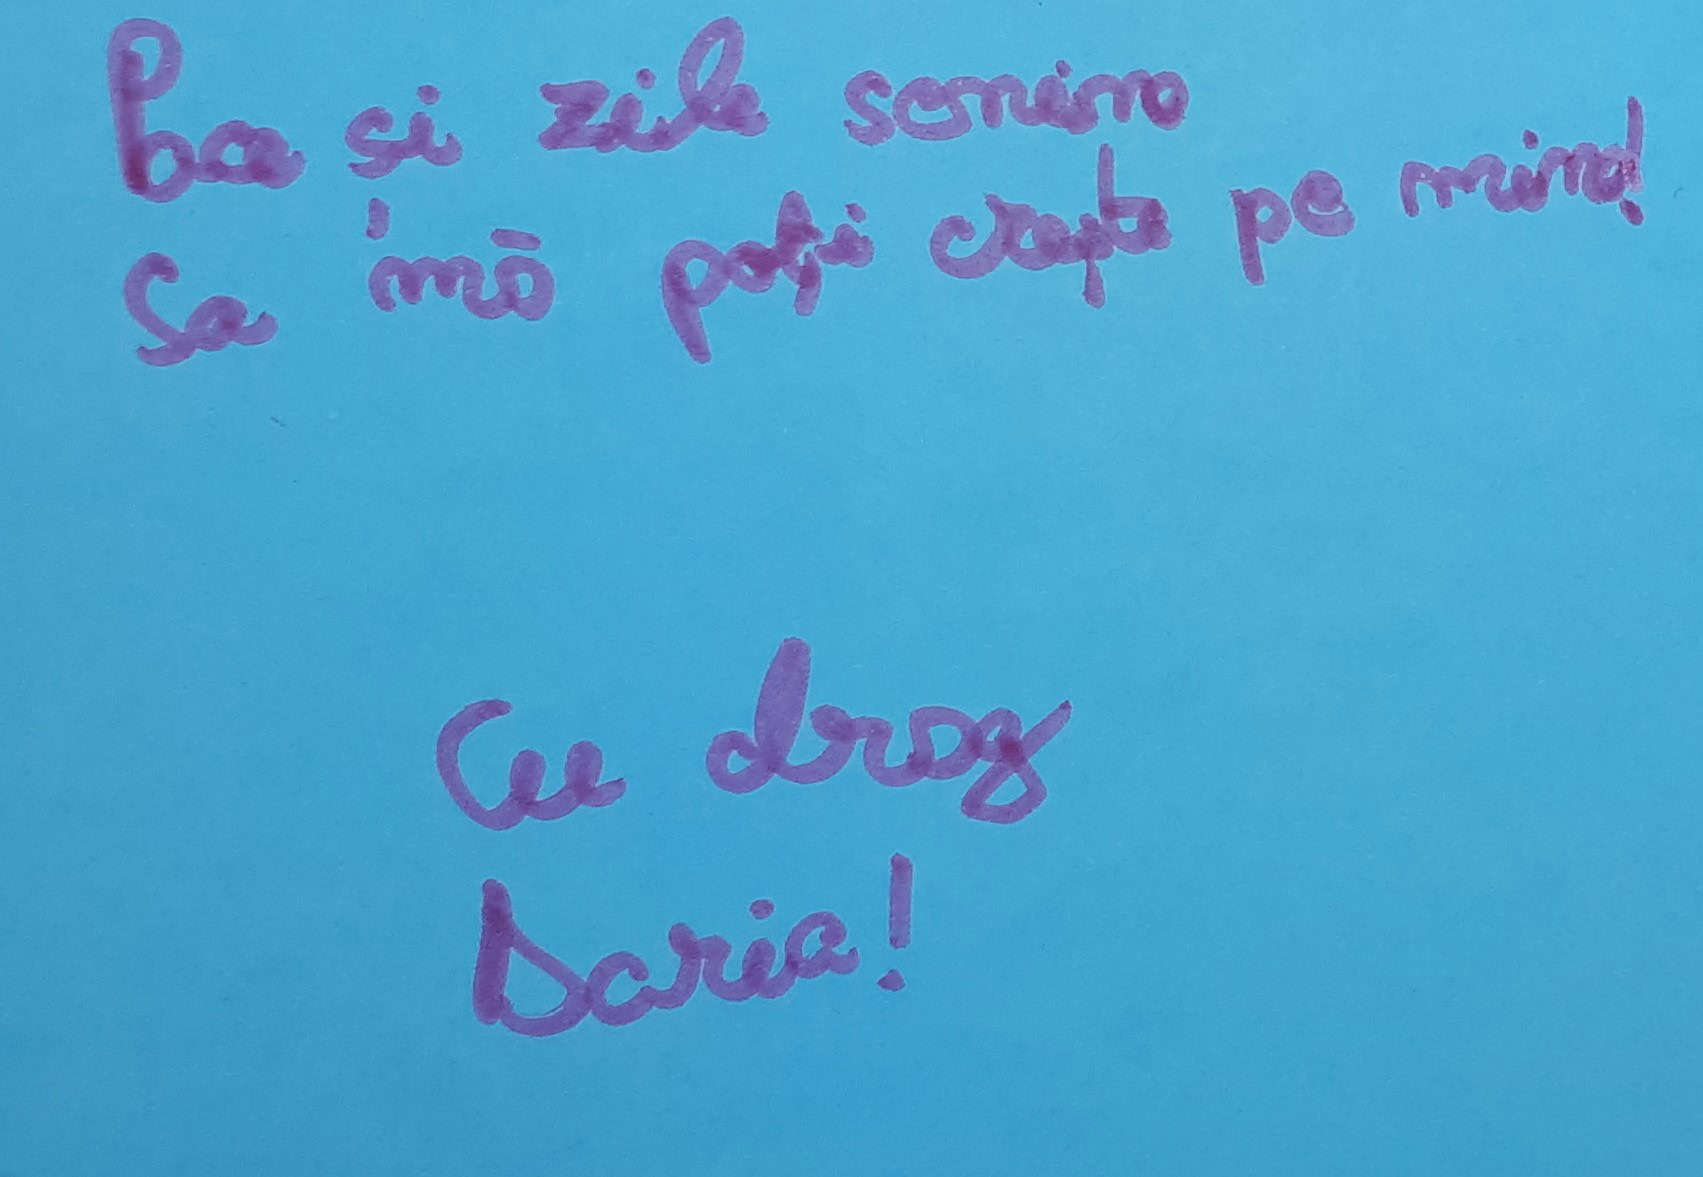 si zile senine
Sa mă poți crește pe mine!
Cu drag
Daria!